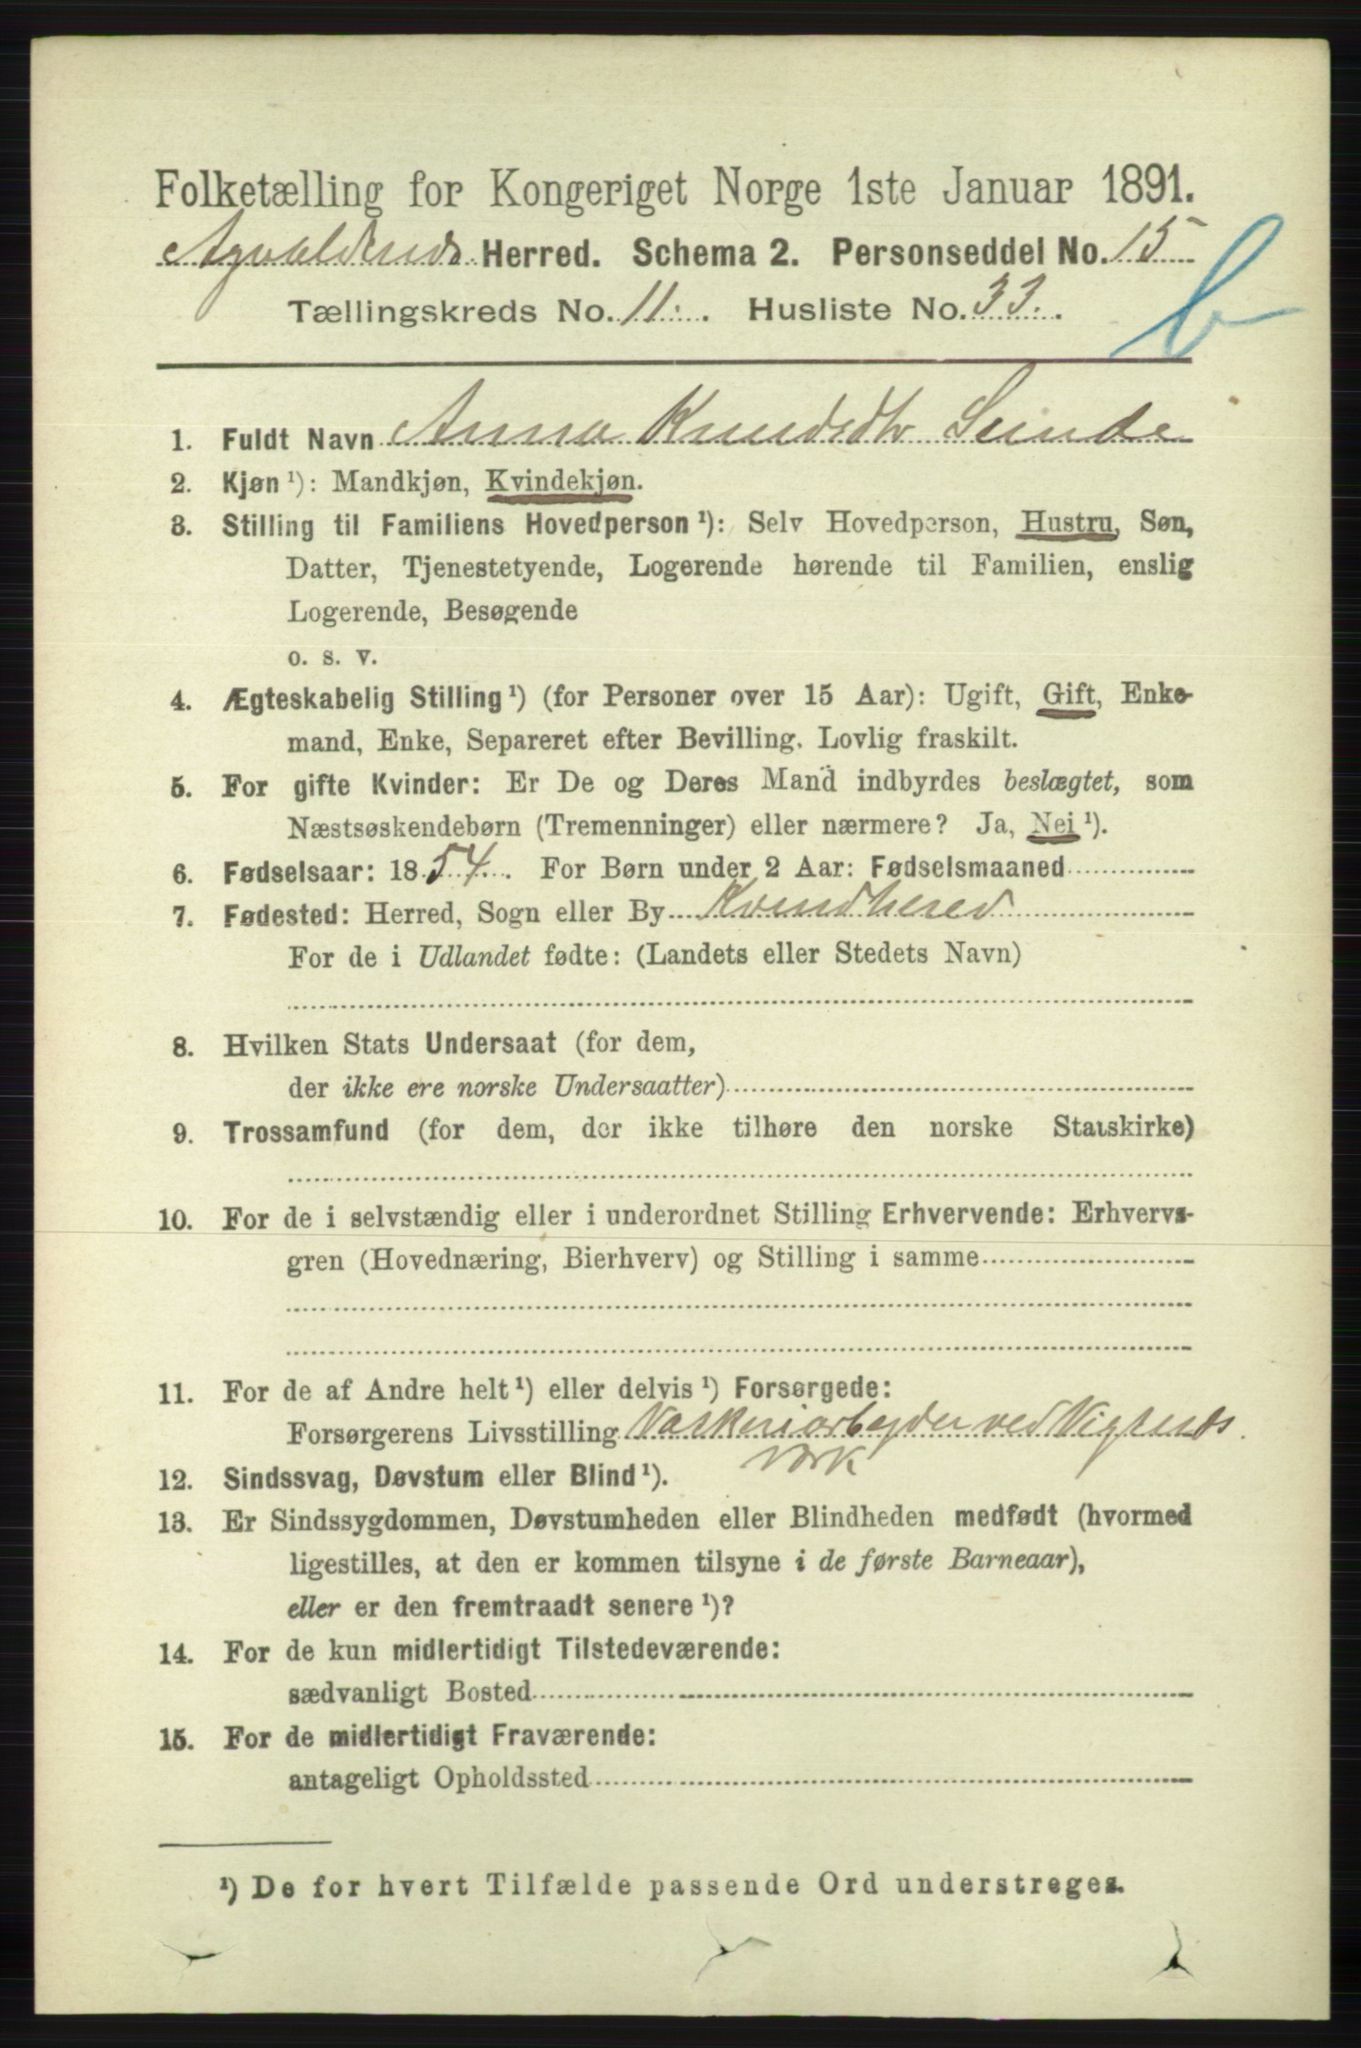 Folketælling for Kongeriget Norge 1ste Januar 1891.
Avaldsnds Herred. Schema 2. Personseddel No. 15
Tællingskreds No. 11. Husliste No. 33.
b
1. Fuldt Navn Anna Knudsdtr Sunde
2. Kjøn¹): Mandkjøn, Kvindekjøn.
3. Stilling til Familiens Hovedperson¹): Selv Hovedperson, Hustru, Søn,
Datter, Tjenestetyende, Logerende hørende til Familien, enslig
Logerende, Besøgende
o. s. v.
4. Ægteskabelig Stilling¹) (for Personer over 15 Aar): Ugift, Gift, Enke-
mand, Enke, Separeret efter Bevilling. Lovlig fraskilt.
5. For gifte Kvinder: Er De og Deres Mand indbyrdes beslægtet, som
Næstsøskendebørn (Tremenninger) eller nærmere? Ja, Nei¹).
6. Fødselsaar: 1854. For Børn under 2 Aar: Fødselsmaaned
7. Fødested: Herred, Sogn eller By Kvindhered
For de i Udlandet fødte: (Landets eller Stedets Navn)
8. Hvilken Stats Undersaat (for dem,
der ikke ere norske Undersaatter)
9. Trossamfund (for dem, der ikke tilhøre den norske Statskirke)
10. For de i selvstændig eller i underordnet Stilling Erhvervende: Erhvervs-
gren (Hovednæring, Bierhverv) og Stilling i samme
11. For de af Andre helt¹) eller delvis¹) Forsørgede:
Forsørgerens Livsstilling Vaskeriarbejder ved Vigsnds
værk
12. Sindssvag, Døvstum eller Blind¹).
13. Er Sindssygdommen, Døvstumheden eller Blindheden medfødt (hvormed
ligestilles, at den er kommen tilsyne i de første Barneaar),
eller er den fremtraadt senere¹)?
14. For de kun midlertidigt Tilstedeværende:
sædvanligt Bosted
15. For de midlertidigt Fraværende:
antageligt Opholdssted
¹) De for hvert Tilfælde passende Ord understreges.